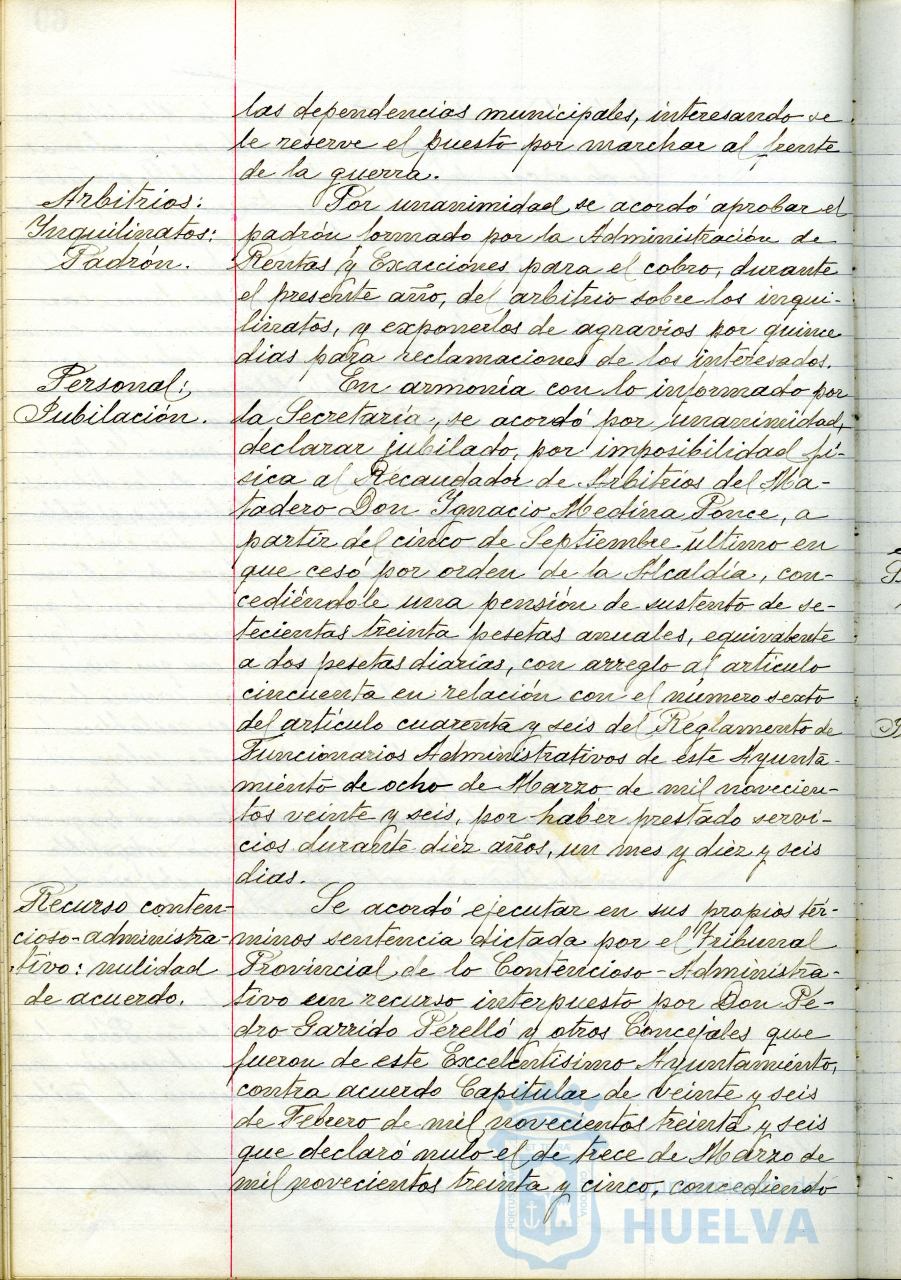 las dependencias municipales, interesando se
le reserve el puesto por marchar al frente
de la guerra.
Arbitrios:
Inquilinatos:
Padrón.
Por unanimidad se acordó aprobar el
padrón formado por la Administración de
Rentas y Exacciones para el cobro, durante
el presente año, del arbitrio sobre los inqui-
linatos, y exponerlos de agravios por quince
dias para reclamaciones de los interesados.
Personal:
Jubilación.
En armonía con lo informado por
la Secretaría, se acordó por unanimidad,
declarar jubilado, por imposibilidad fí-
sica al Recaudador de Arbitrios del Ma-
tadero Don Ygnacio Medina Ponce, a
partir del cinco de Septiembre último en
que cesó por orden de la Alcaldía, con-
cediéndole una pensión de sustento de se-
tecientas treinta pesetas anuales, equivalente
a dos pesetas diarias, con arreglo al artículo
cincuenta en relación con el número sexto
del artículo cuarenta y seis del Reglamento de
Funcionarios Administrativos de este Ayunta-
miento de ocho de Marzo de mil novecien-
tos veinte y seis, por haber prestado servi-
cios durante diez años, un mes y diez y seis
dias.
Recurso conten-
cioso-administra-
tivo: nulidad
de acuerdo.
Se acordó ejecutar en sus propios tér-
minos sentencia dictada por el Tribunal
Provincial de lo Contencioso-Administra-
tivo en recurso interpuesto por Don Pe-
dro Garrido Perelló y otros Concejales que
fueron de este Excelentísimo Ayuntamiento,
contra acuerdo Capitular de veinte y seis
de Febrero de mil novecientos treinta y seis
que declaró nulo el de trece de Marzo de
mil novecientos treinta y cinco, concediendo
HUELVA